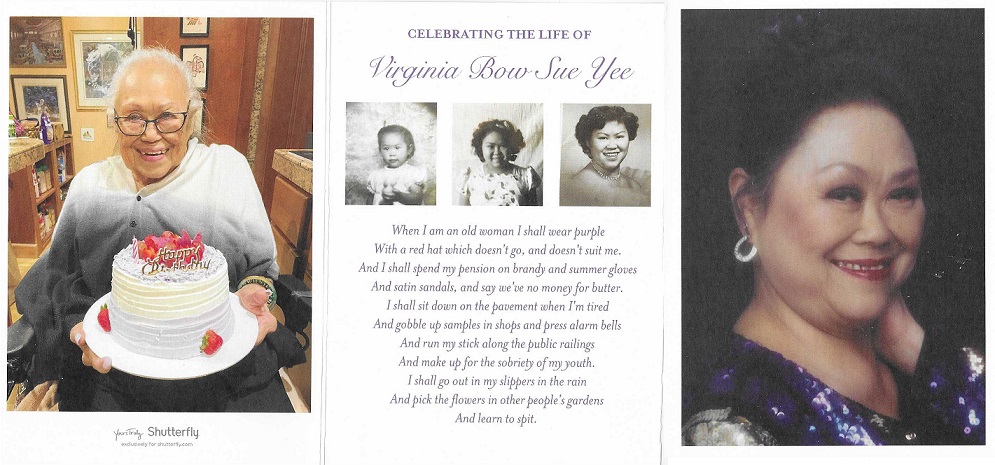 Happy
Birthday
Yours Truly Shutterfly
exclusively for shutterfly.com
CELEBRATING THE LIFE OF
Virginia Bow Sue Yee
When I am an old woman I shall wear purple
With a red hat which doesn't go, and doesn't suit me.
And I shall spend my pension on brandy and summer gloves
And satin sandals, and say we've no money for butter.
I shall sit down on the pavement when I'm tired
And gobble up samples in shops and press alarm bells
And run my stick along the public railings
And make up for the sobriety of my youth.
I shall go out in my slippers in the rain
And pick the flowers in other people's gardens
And learn to spit.